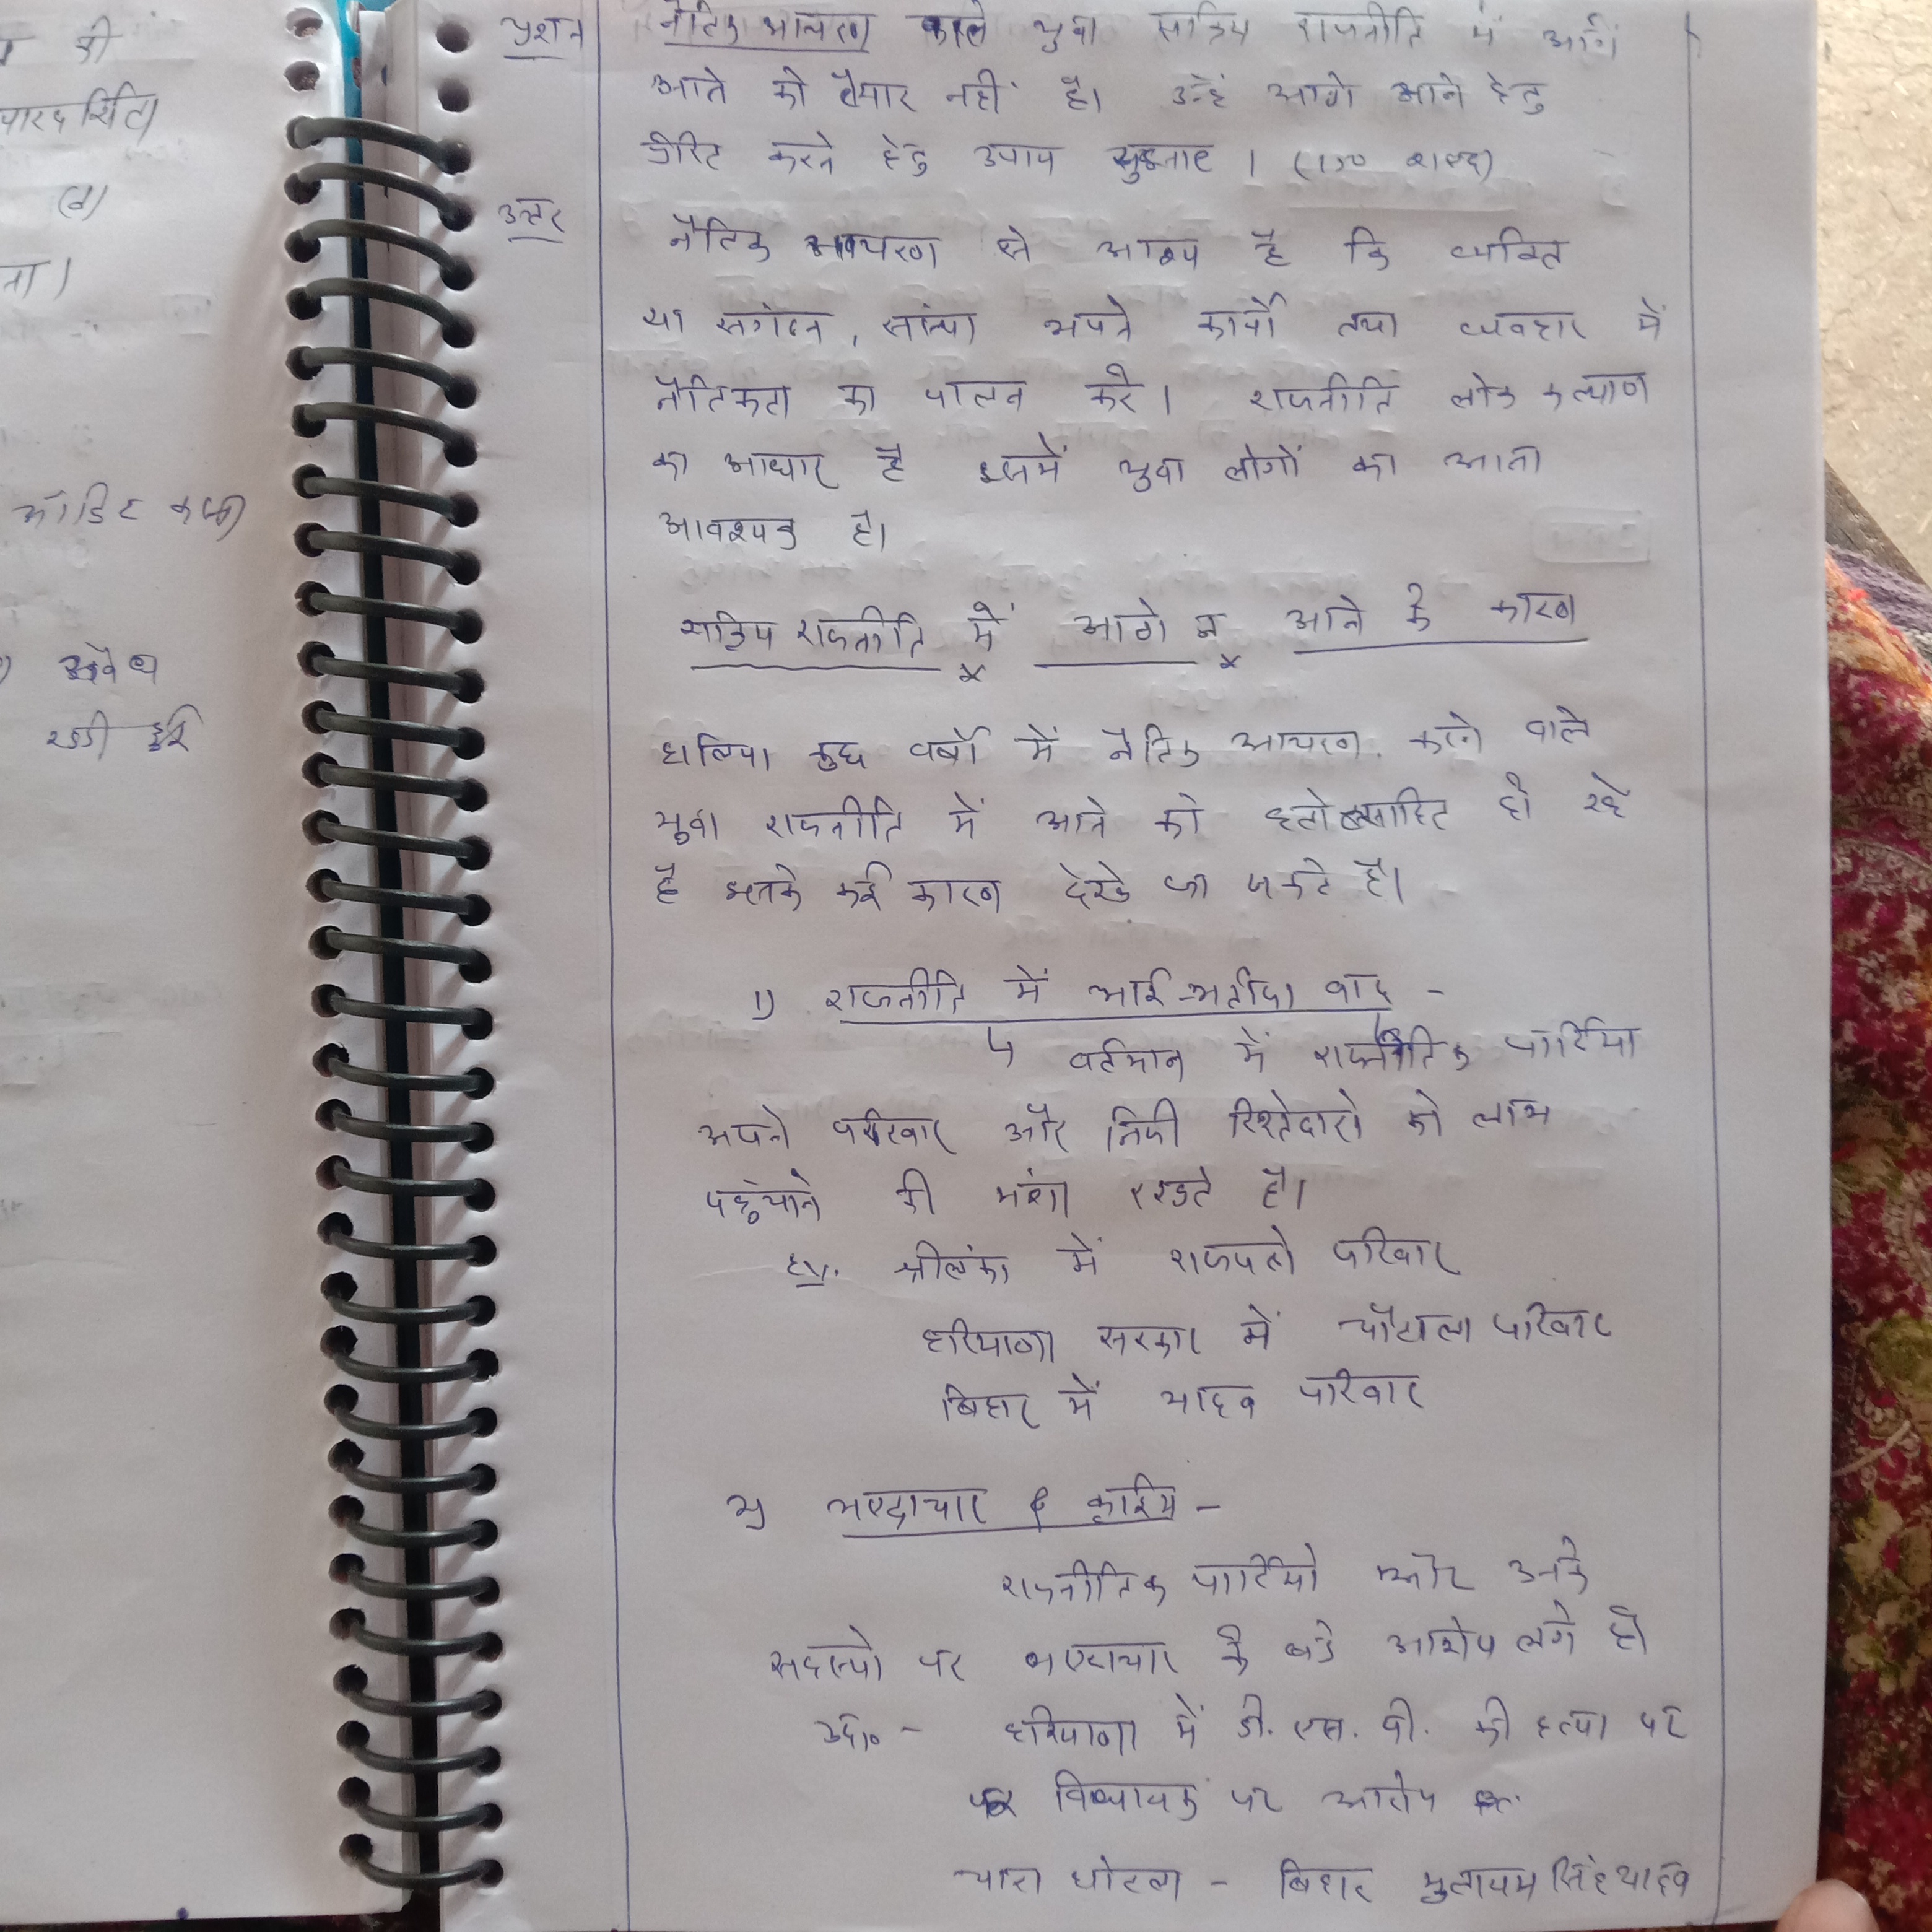 की
पारदर्शिता
(व)
ता।
ऑडिट करना
अवैध
रखी हुई
प्रशन नैतिक आचरण वाले युवा सक्रिय राजनीति में आगे
आने को तैयार नहीं है। उन्हें आगे आने हेतु
प्रेरित करने हेतु उपाय सुझाए। (150 शब्द)
उत्तर नैतिक आचरण से आशय है कि व्यक्ति
या सगंठन, संस्था अपने कार्यों तथा व्यवहार में
नैतिकता का पालन करे। राजनीति लोक कल्याण
का आधार है इसमें युवा लोगों का आना
आवश्यक है।
सक्रिय राजनीति में आगे न आने के कारण
हालिया कुछ वर्षों में नैतिक आचरण करने वाले
युवा राजनीति में आने को हतोत्साहित हो रहे
है इसके कई कारण देखे जा सकते है।
1) राजनीति में भाई-भतीजा वाद -
↳ वर्तमान में राजनीतिक पार्टिया
अपने परिवार और निजी रिश्तेदारो को लाभ
पहुंचाने की मंशा रखते है।
Ex. श्रीलंका में राजपक्षे परिवार
हरियाणा सरकार में चौटाला परिवार
बिहार में यादव परिवार
2) भष्टाचार & क्राईम -
राजनीतिक पार्टियो और उनके
सदस्यो पर भष्टाचार के बडे आरोप लगे है।
उदा० - हरियाणा में डी. एस. पी. की हत्या पर
विधायक पर आरोप
चारा घोटला - बिहार मुलायम सिंह यादव